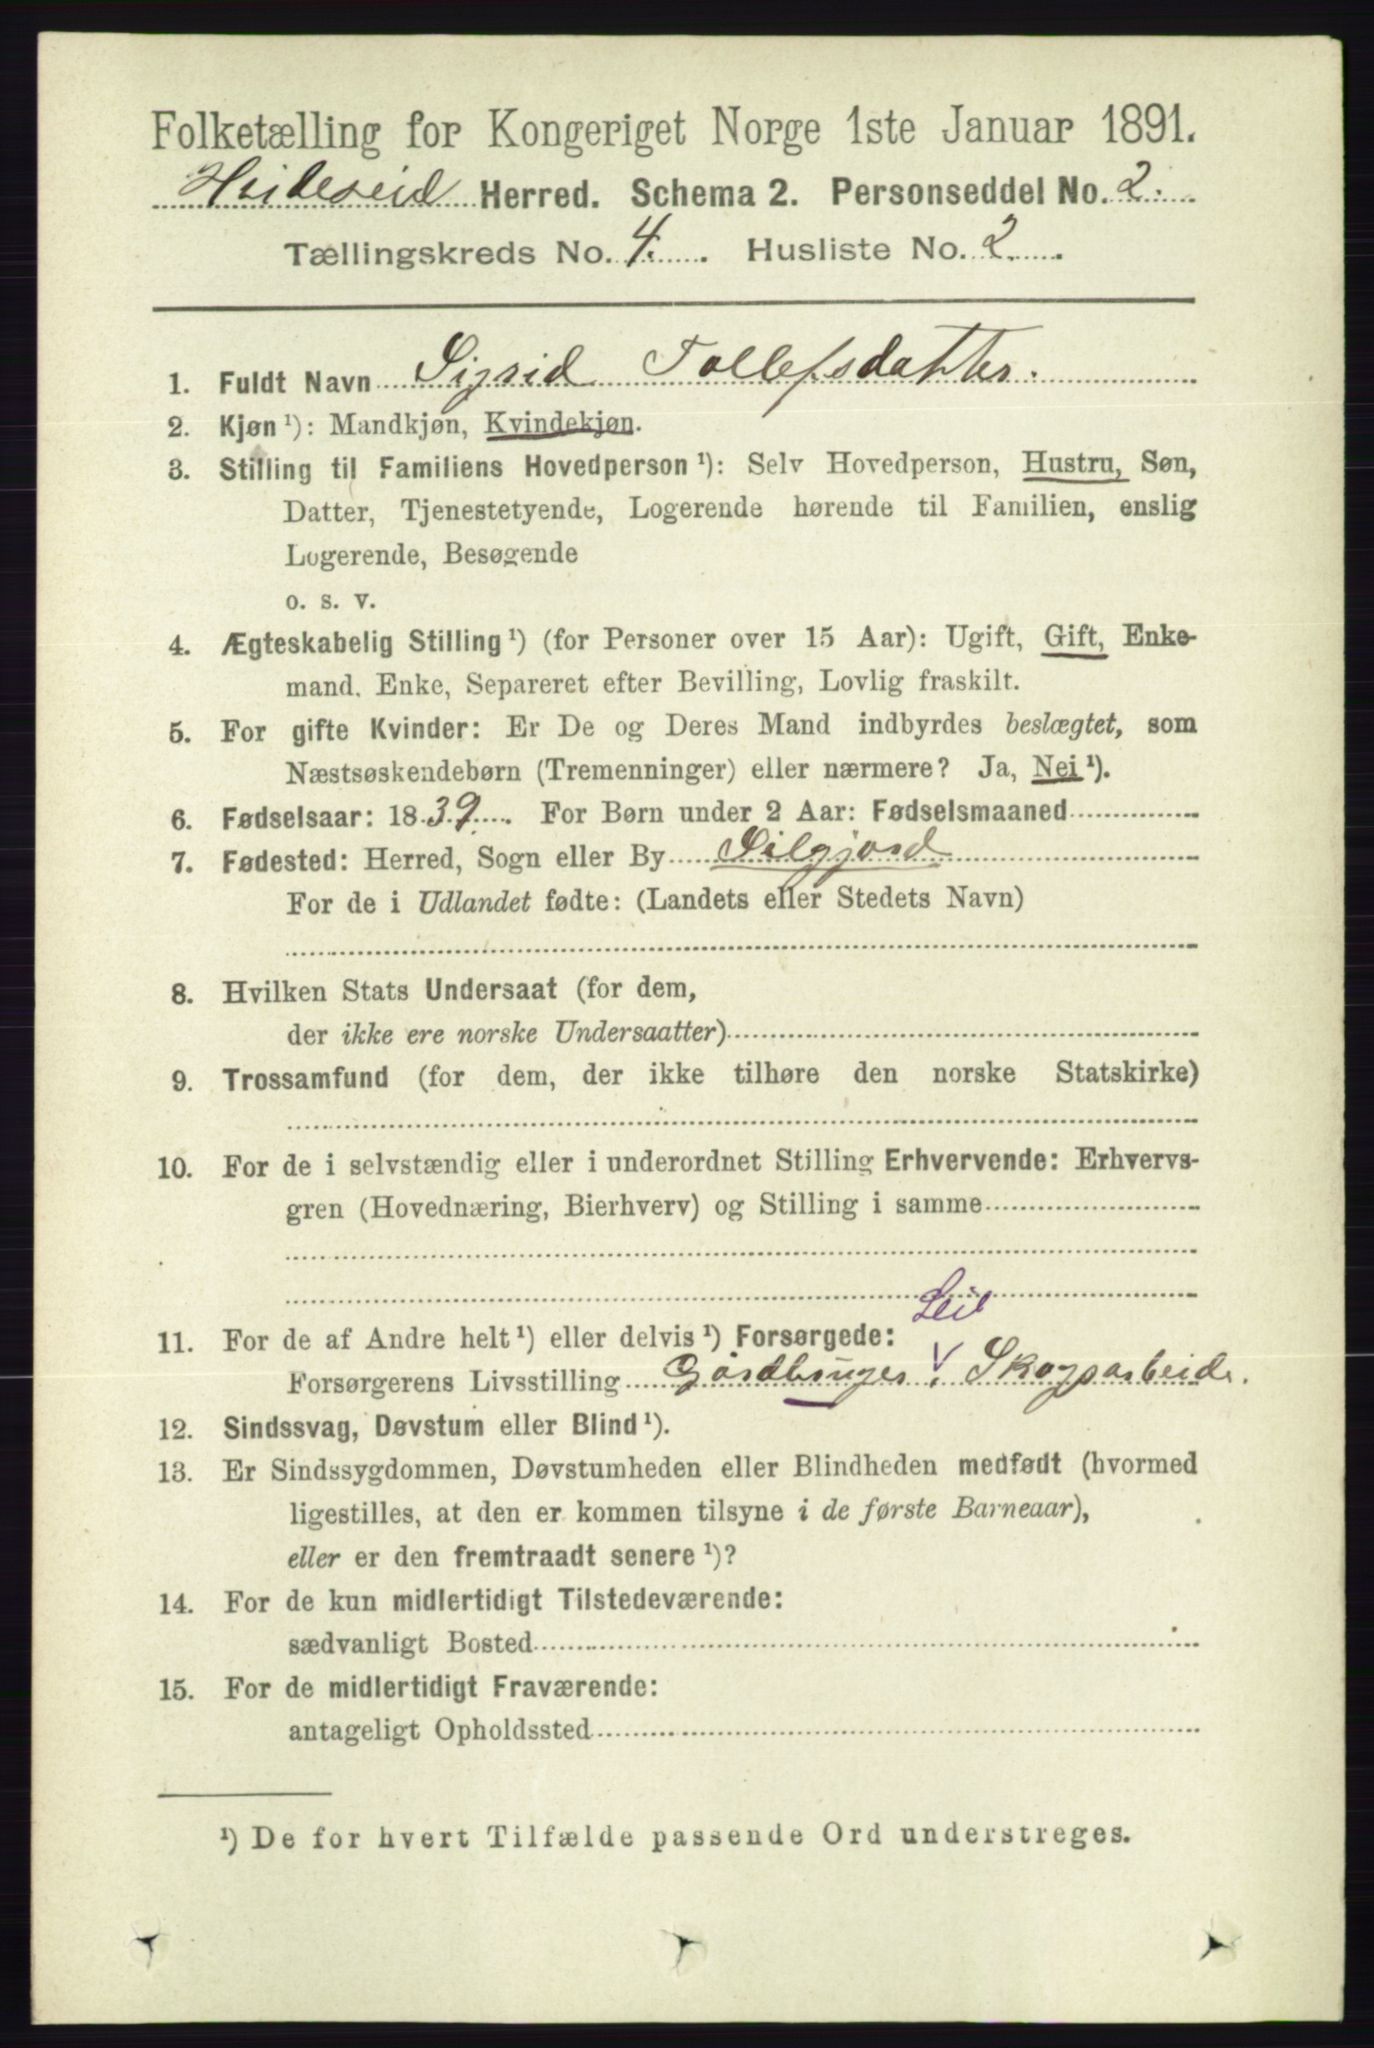 Folketælling for Kongeriget Norge 1ste Januar 1891.
Hvideseid Herred. Schema 2. Personseddel No. 2.
Tællingskreds No. 4. Husliste No. 2.
1. Fuldt Navn Sigrid Tollefsdatter.
2. Kjøn ¹): Mandkjøn, Kvindekjøn.
3. Stilling til Familiens Hovedperson ¹): Selv Hovedperson, Hustru, Søn,
Datter, Tjenestetyende, Logerende hørende til Familien, enslig
Logerende, Besøgende
o. s. v.
4. Ægteskabelig Stilling ¹) (for Personer over 15 Aar): Ugift, Gift, Enke-
mand, Enke, Separeret efter Bevilling, Lovlig fraskilt.
5. For gifte Kvinder: Er De og Deres Mand indbyrdes beslægtet, som
Næstsøskendebørn (Tremenninger) eller nærmere? Ja, Nei ¹).
6. Fødselsaar: 1839. For Børn under 2 Aar: Fødselsmaaned
7. Fødested: Herred, Sogn eller By Silgjord
For de i Udlandet fødte: (Landets eller Stedets Navn)
8. Hvilken Stats Undersaat (for dem,
der ikke ere norske Undersaatter)
9. Trossamfund (for dem, der ikke tilhøre den norske Statskirke)
10. For de i selvstændig eller i underordnet Stilling Erhvervende: Erhvervs-
gren (Hovednæring, Bierhverv) og Stilling i samme
Leil
11. For de af Andre helt ¹) eller delvis ¹) Forsørgede:
Forsørgerens Livsstilling Gårdbruger. Skogsarbeid.
12. Sindssvag, Døvstum eller Blind ¹).
13. Er Sindssygdommen, Døvstumheden eller Blindheden medfødt (hvormed
ligestilles, at den er kommen tilsyne i de første Barneaar),
eller er den fremtraadt senere ¹)?
14. For de kun midlertidigt Tilstedeværende:
sædvanligt Bosted
15. For de midlertidigt Fraværende:
antageligt Opholdssted
¹) De for hvert Tilfælde passende Ord understreges.